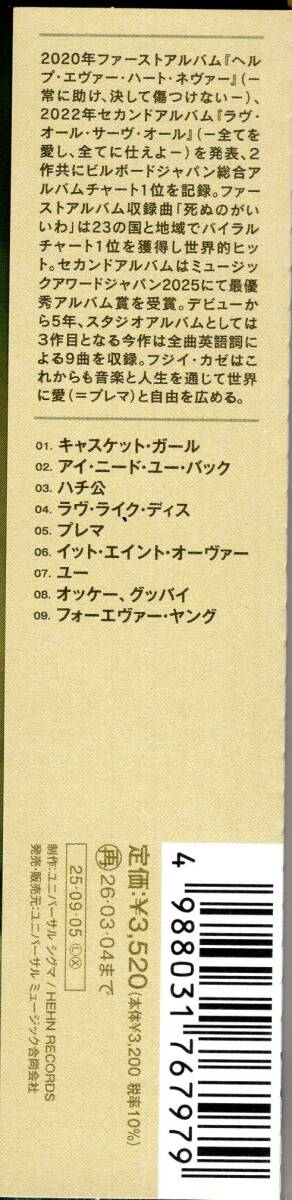 2020年ファーストアルバム『ヘル
プ・エヴァー・ハート・ネヴァー』(－
常に助け、決して傷つけない－)、
2022年セカンドアルバム『ラヴ・
オール・サーヴ・オール』(－全てを
愛し、全てに仕えよ－)を発表、2
作共にビルボードジャパン総合ア
ルバムチャート1位を記録。ファー
ストアルバム収録曲「死ぬのがい
いわ」は23の国と地域でバイラル
チャート1位を獲得し世界的ヒッ
ト。セカンドアルバムはミュージッ
クアワードジャパン2025にて最優
秀アルバム賞を受賞。デビューか
ら5年、スタジオアルバムとしては
3作目となる今作は全曲英語詞に
よる9曲を収録。フジイ・カゼはこ
れからも音楽と人生を通じて世界
に愛(＝プレマ)と自由を広める。
01. キャスケット・ガール
02. アイ・ニード・ユー・バック
03. ハチ公
04. ラヴ・ライク・ディス
05. プレマ
06. イット・エイント・オーヴァー
07. ユー
08. オッケー、グッバイ
09. フォーエヴァー・ヤング
定価:¥3,520(本体¥3,200 税率10%)
再 26・03・04まで
25・09・05 Ⓛ Ⓧ
制作:ユニバーサル シグマ / HEHN RECORDS
発売・販売元:ユニバーサル ミュージック合同会社
4 988031 767979